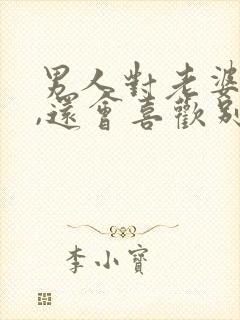 男人對老婆
,還會喜歡別
李小寶